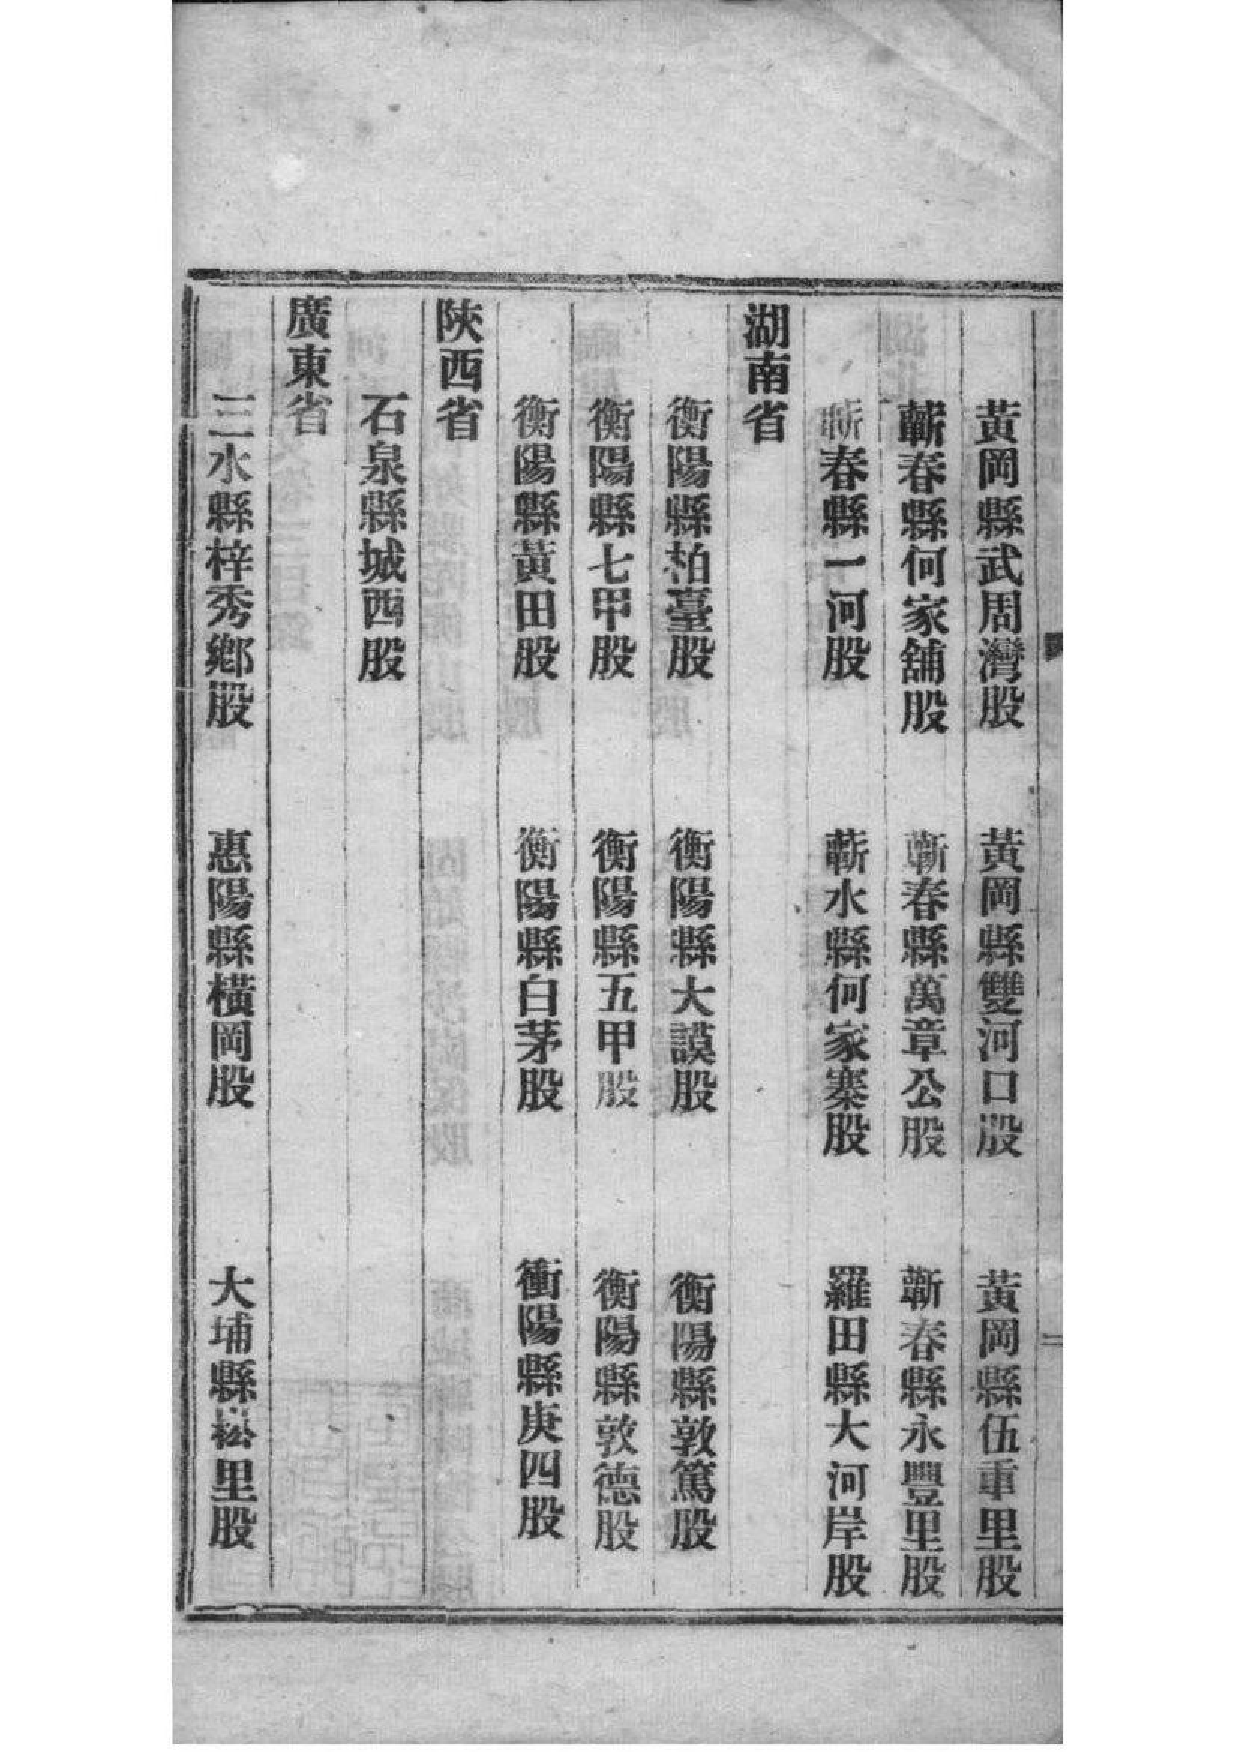 黃岡縣武周灣股 黃岡縣雙河口股 黃岡縣伍重里股
蘄春縣何家舖股 蘄春縣萬章公股 蘄春縣永豐里股
蘄春縣一河股 蘄水縣何家寨股 羅田縣大河岸股
湖南省
衡陽縣柏臺股 衡陽縣大謨股 衡陽縣敦篤股
衡陽縣七甲股 衡陽縣五甲股 衡陽縣敦德股
衡陽縣黃田股 衡陽縣白茅股 衡陽縣庚四股
陜西省
石泉縣城西股
廣東省
三水縣梓秀鄉股 惠陽縣橫岡股 大埔縣崧里股